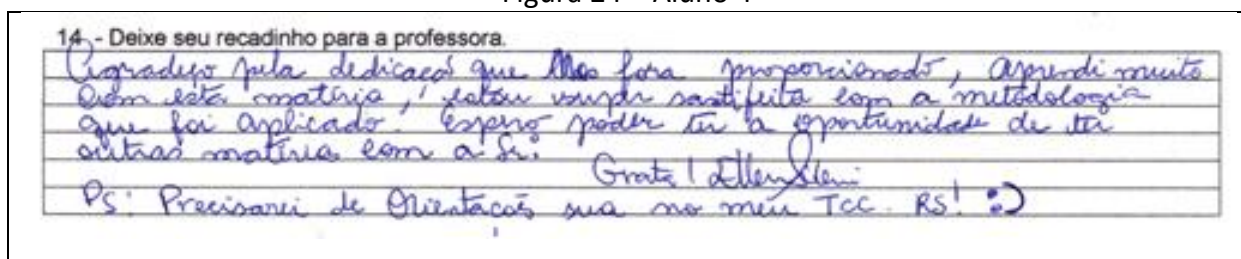 14 - Deixe seu recadinho para a professora.
Agradeço pela dedicação que fora proporcionado, aprendi muito
com esta matéria, estou satisfeita com a metodologia
que foi aplicado. Espero poder ter a oportunidade de ter
outras matéria com a Sr.
Grata!
PS: Precisarei de Orientação sua no meu TCC. RS! :)